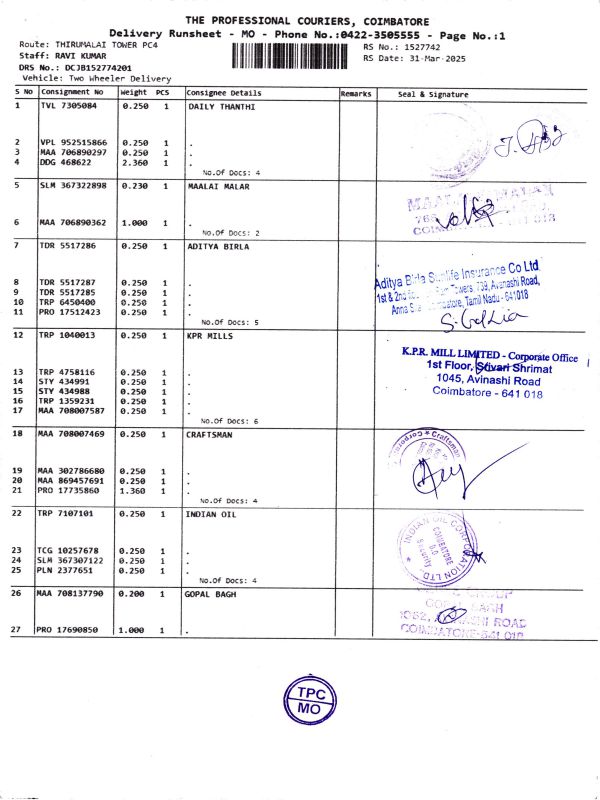 THE PROFESSIONAL COURIERS, COIMBATORE
Delivery Runsheet - MO - Phone No.:0422-3505555 - Page No.:1
Route: THIRUMALAI TOWER PC4
RS No.: 1527742
Staff: RAVI KUMAR
RS Date: 31-Mar-2025
DRS No.: DCJB152774201
Vehicle: Two Wheeler Delivery
S No Consignment No Weight PCS Consignee Details Remarks Seal & Signature
1 TVL 7305084 0.250 1 DAILY THANTHI
2 VPL 952515866 0.250 1 .
3 MAA 706890297 0.250 1 .
4 DDG 468622 2.360 1 .
No.Of Docs: 4
5 SLM 367322898 0.230 1 MAALAI MALAR
6 MAA 706890362 1.000 1 .
No.Of Docs: 2
7 TDR 5517286 0.250 1 ADITYA BIRLA
Aditya Birla Sunlife Insurance Co Ltd
8 TDR 5517287 0.250 1 .
1st & 2nd Towers, 739, Avanashi Road,
9 TDR 5517285 0.250 1 .
10 TRP 6450400 0.250 1 .
Anna Coimbatore, Tamil Nadu - 641018
11 PRO 17512423 0.250 1 .
No.Of Docs: 5
12 TRP 1040013 0.250 1 KPR MILLS
K.P.R. MILL LIMITED - Corporate Office
1st Floor, Srivari Shrimat
13 TRP 4758116 0.250 1 .
1045, Avinashi Road
14 STY 434991 0.250 1 .
15 STY 434988 0.250 1 .
Coimbatore - 641 018
16 TRP 1359231 0.250 1 .
17 MAA 708007587 0.250 1 .
No.Of Docs: 6
18 MAA 708007469 0.250 1 CRAFTSMAN
Craftsman
19 MAA 302786680 0.250 1 .
20 MAA 869457691 0.250 1 .
21 PRO 17735860 1.360 1 .
No.Of Docs: 4
22 TRP 7107101 0.250 1 INDIAN OIL
INDIAN OIL CORPORATION LTD.
COIMBATORE
D.O
Security
23 TCG 10257678 0.250 1 .
24 SLM 367307122 0.250 1 .
25 PLN 2377651 0.250 1 .
No.Of Docs: 4
26 MAA 708137790 0.200 1 GOPAL BAGH
GOPAL BAGH
ROAD
27 PRO 17690850 1.000 1 .
COIMBATORE-641 018
TPC
MO